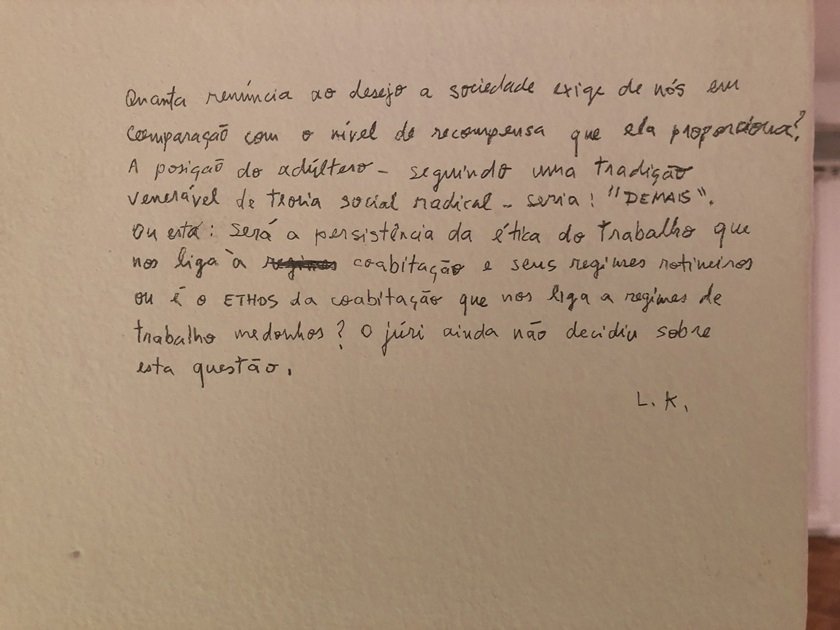 Quanta renúncia ao desejo a sociedade exige de nós em
comparação com o nível de recompensa que ela proporciona?
A posição do adúltero - seguindo uma tradição
venerável de teoria social radical - seria: "DEMAIS".
Ou esta: Será a persistência da ética do trabalho que
nos liga à coabitação e seus regimes rotineiros
ou é o ETHOS da coabitação que nos liga a regimes de
trabalho medonhos? O júri ainda não decidiu sobre
esta questão.
L. K.